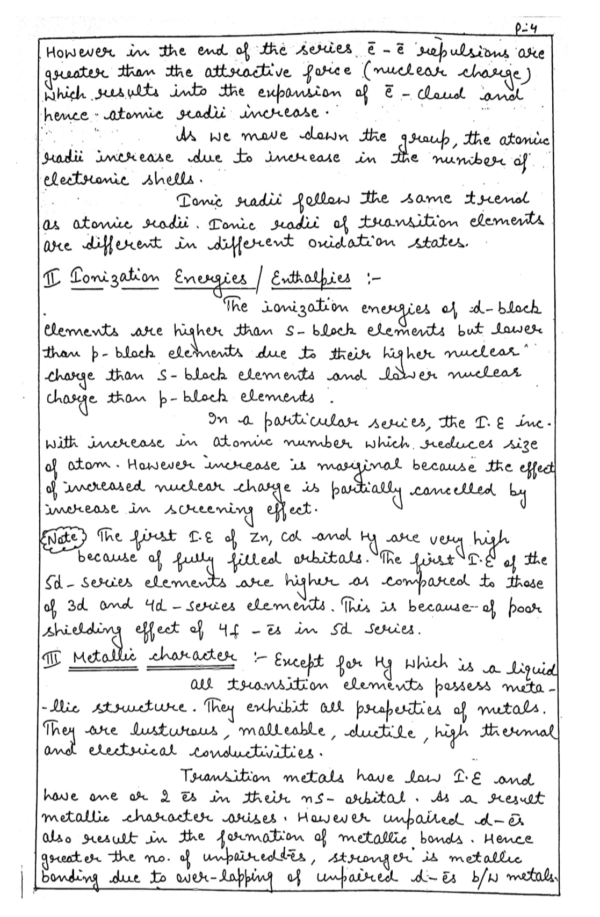 P-4
However in the end of the series ē - ē repulsions are
greater than the attractive force (nuclear charge)
which results into the expansion of ē - cloud and
hence atomic radii increase.
As we move down the group, the atomic
radii increase due to increase in the number of
electronic shells.
Ionic radii follow the same trend
as atomic radii. Ionic radii of transition elements
are different in different oxidation states.
II Ionization Energies / Enthalpies :-
The ionization energies of d-block
elements are higher than s-block elements but lower
than p-block elements due to their higher nuclear
charge than s-block elements and lower nuclear
charge than p-block elements.
In a particular series, the I.E inc.
with increase in atomic number which reduces size
of atom. However increase is marginal because the effect
of increased nuclear charge is partially cancelled by
increase in screening effect.
Note The first I.E of Zn, Cd and Hg are very high
because of fully filled orbitals. The first I.E of the
5d-series elements are higher as compared to those
of 3d and 4d-series elements. This is because of poor
shielding effect of 4f - ēs in 5d series.
III Metallic character :- Except for Hg which is a liquid
all transition elements possess meta-
-llic structure. They exhibit all properties of metals.
They are lusturous, malleable, ductile, high thermal
and electrical conductivities.
Transition metals have low I.E and
have one or 2 ēs in their ns-orbital. As a result
metallic character arises. However unpaired d-ēs
also result in the formation of metallic bonds. Hence
greater the no. of unpaired ēs, stronger is metallic
bonding due to over-lapping of unpaired d-ēs b/w metals.